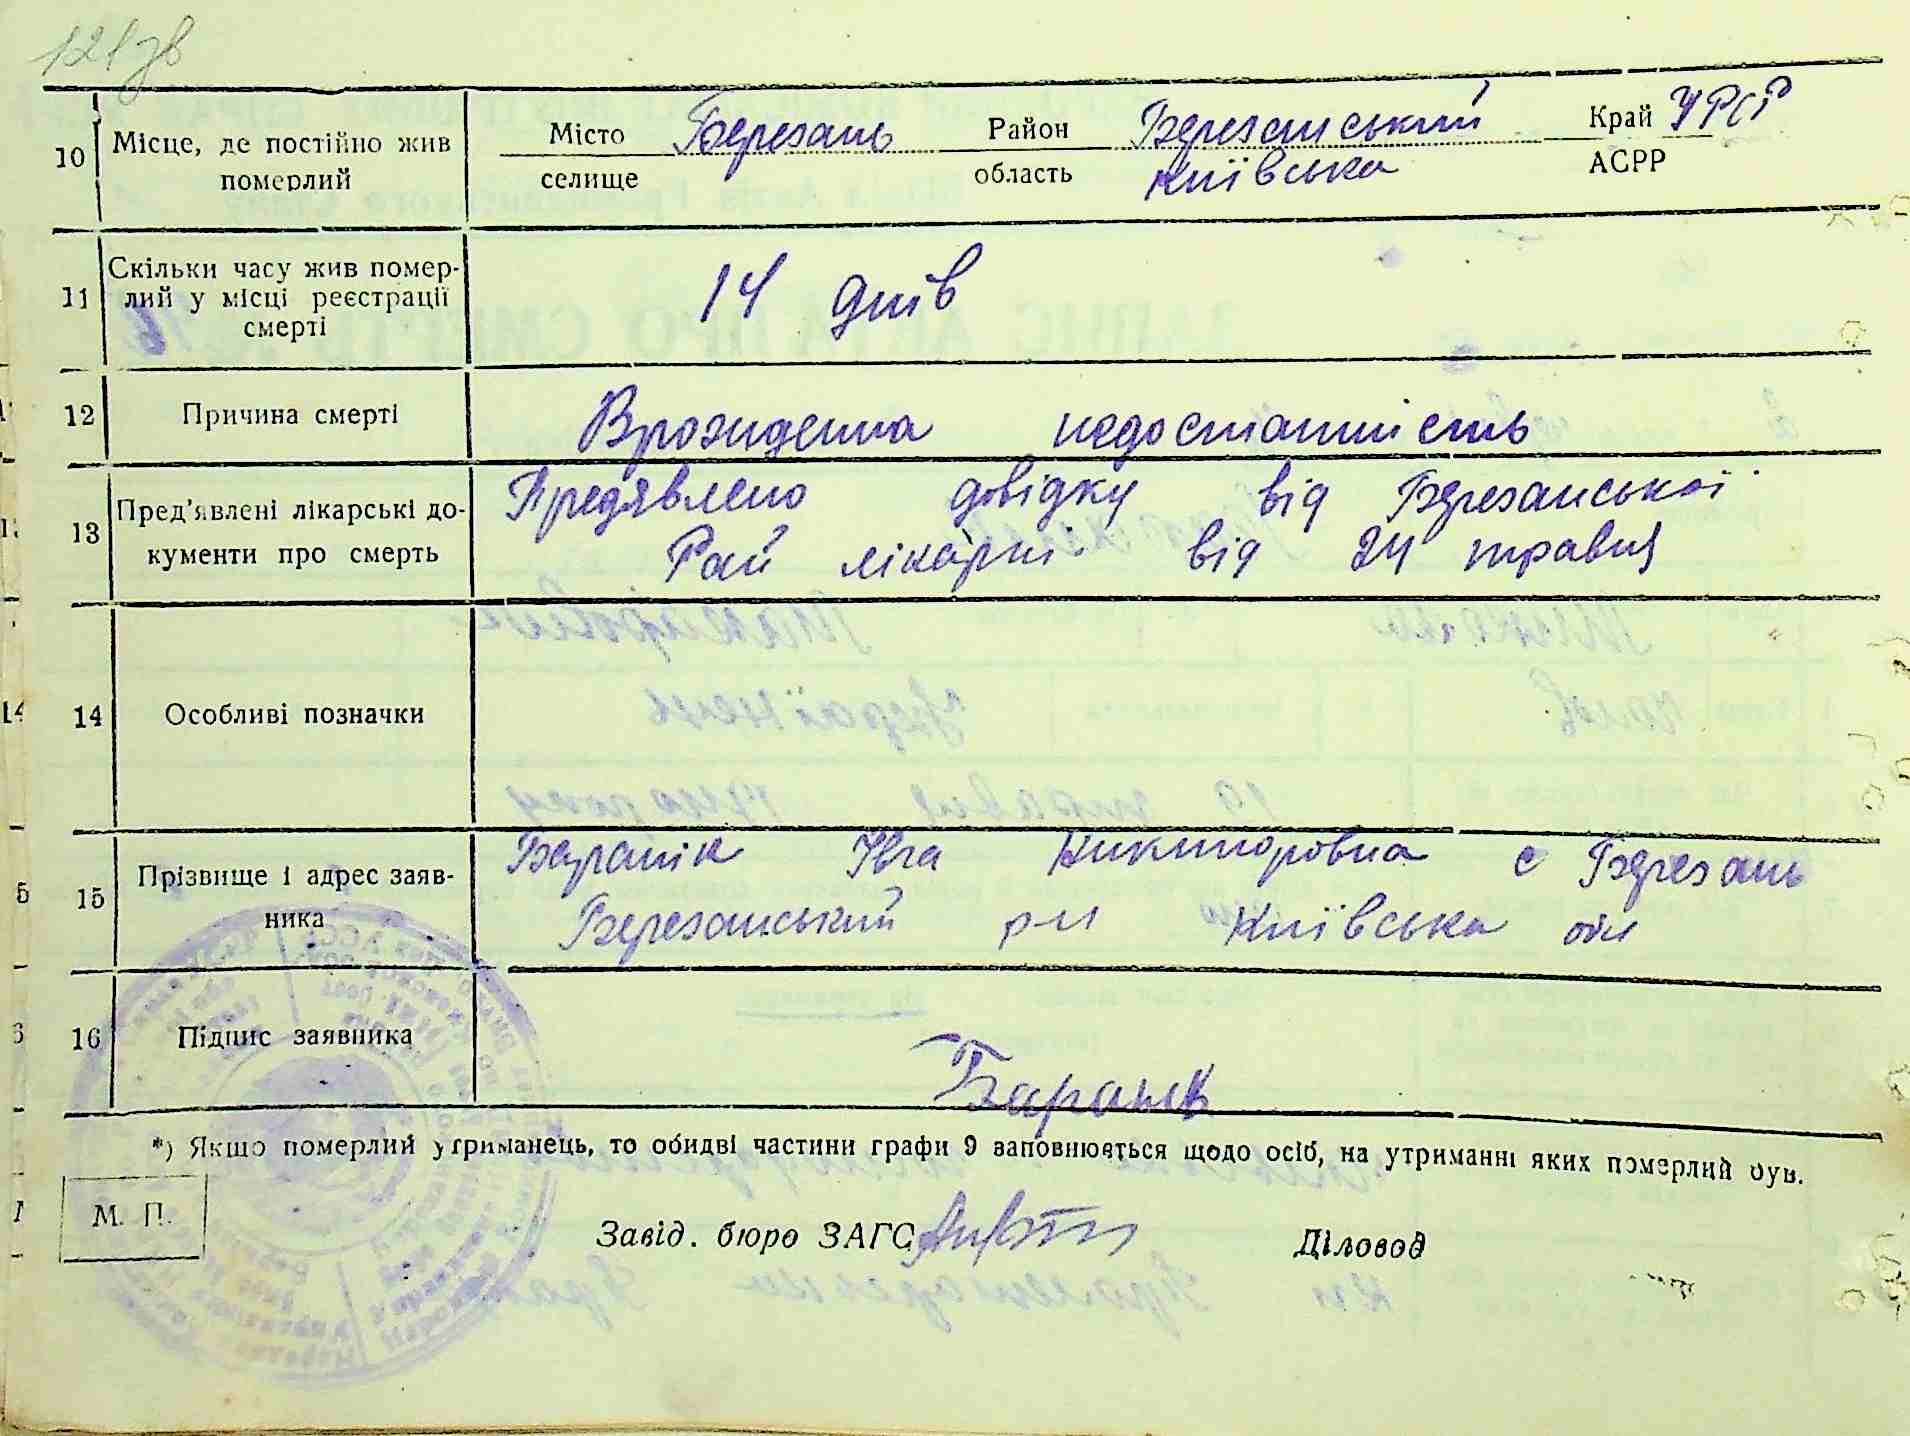 121зв
10 Місце, де постійно жив померлий
Місто Березань Район Березанський Край УРСР
селище область Київська АСРР
11 Скільки часу жив помер-
лий у місці реєстрації
смерті
14 днів
12 Причина смерті Врожиденна недостатність
13 Пред'явлені лікарські до-
кументи про смерть
Предявлено довідку від Березанської
Рай лікарні від 24 травня
14 Особливі позначки
15 Прізвище і адрес заяв-
ника
Баранік Ївга Никиторовна с Березань
Березанський р-н Київська обл
16 Підпис заявника
Бараник
*) Якщо померлий утриманець, то обидві частини графи 9 заповнюється щодо осіб, на утриманні яких померлий був.
М. П.
Завід. бюро ЗАГС Діловод